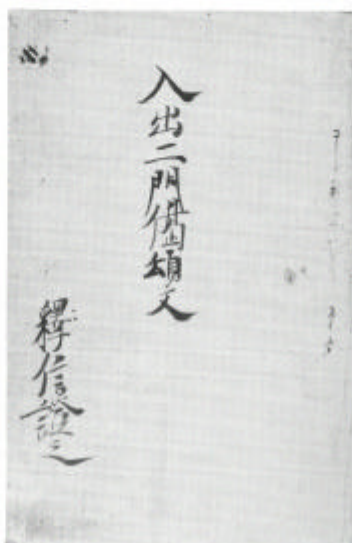 入出二門偈頌文
釋信證之